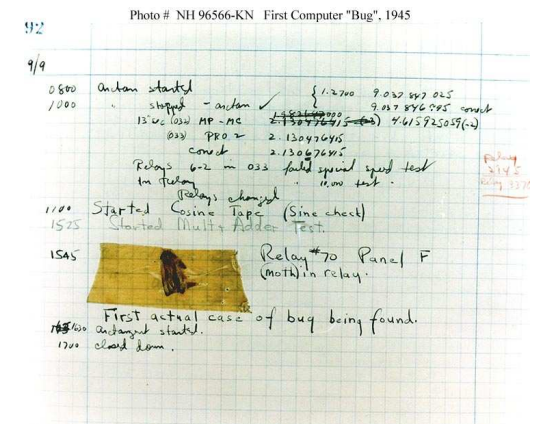 Photo # NH 96566-KN First Computer "Bug", 1945
92
9/9
0800 antan started
1000 " stopped - antan ✓ { 1.2700 9.037 847 025
9.037 846 995 correct
13"uc (032) MP - MC 2.130476415 4.615925059(-2)
(033) PRO 2 2.130476415
correct 2.130676415
Relays 6-2 in 033 failed special speed test
in Relay " 10,000 test .
Relays changed
Relay
2145
Relay 3370
1100 Started Cosine Tape (Sine check)
1525 Started Mult + Adder Test.
1545 Relay #70 Panel F
(moth) in relay.
First actual case of bug being found.
1630 antangent started.
1700 closed down.